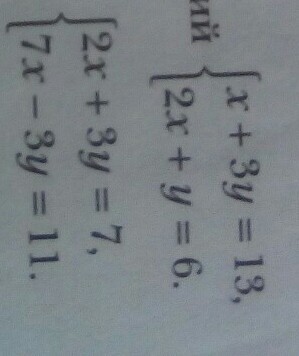 ий
x + 3y = 13,
2x + y = 6.
2x + 3y = 7,
7x − 3y = 11.